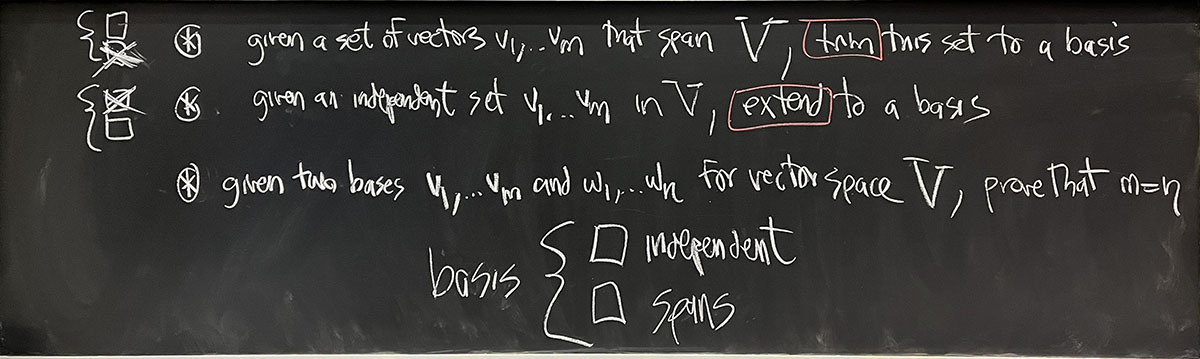 ⊛ given a set of vectors v₁,...vₘ that span V, trim this set to a basis
⊛ given an independent set v₁,...vₘ in V, extend to a basis
⊛ given two bases v₁,...vₘ and w₁,...wₙ for vector space V, prove that m=n
basis { □ independent
□ spans